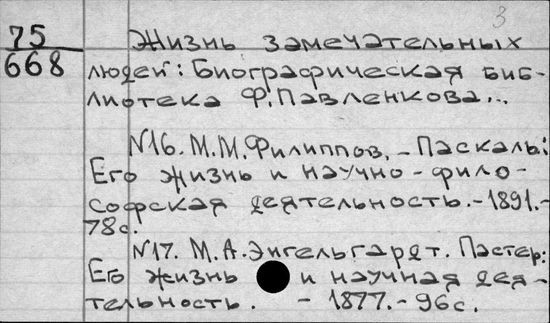 3
75 Жизнь замечательных
668 людей: Биографическая биб-
лиотека Ф. Павленкова...
N16. М.М. Филиппов. – Паскаль:
Его жизнь и научно-фило-
софская деятельность. – 1891. –
78с.
N17. М.А. Энгельгардт. Пастер:
Его жизнь и научная дея-
тельность. – 1877. – 96с.